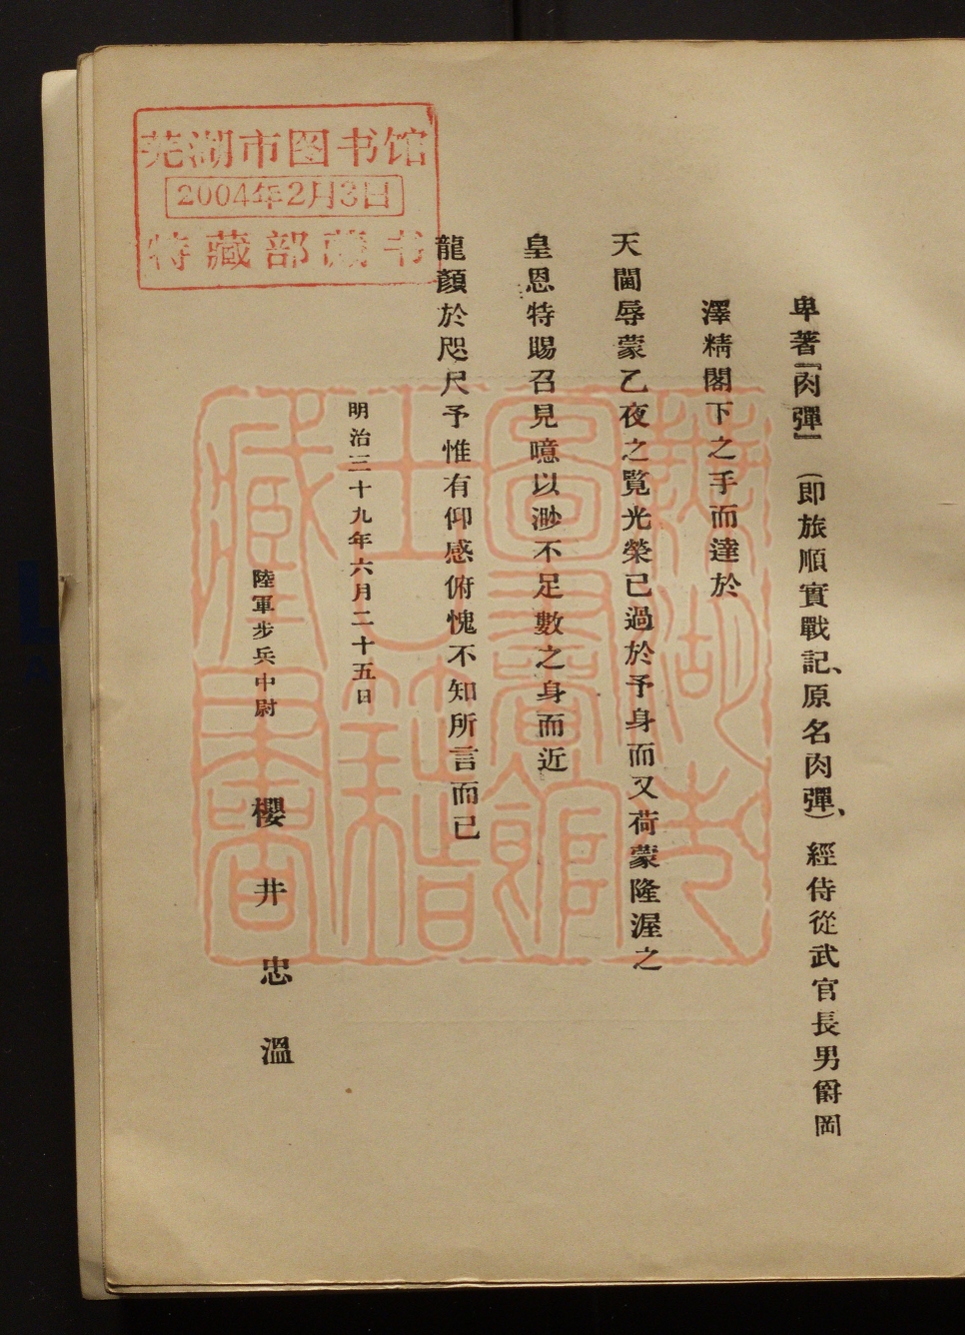 卑著『肉彈』（即旅順實戰記、原名肉彈、）經侍從武官長男爵岡
澤精閣下之手而達於
天閽辱蒙乙夜之覽光榮已過於予身而又荷蒙隆渥之
皇恩特賜召見噫以渺不足數之身而近
龍顏於咫尺予惟有仰感俯愧不知所言而已
明治三十九年六月二十五日
陸軍步兵中尉　櫻井忠溫
芜湖市图书馆
2004年2月3日
特藏部藏书